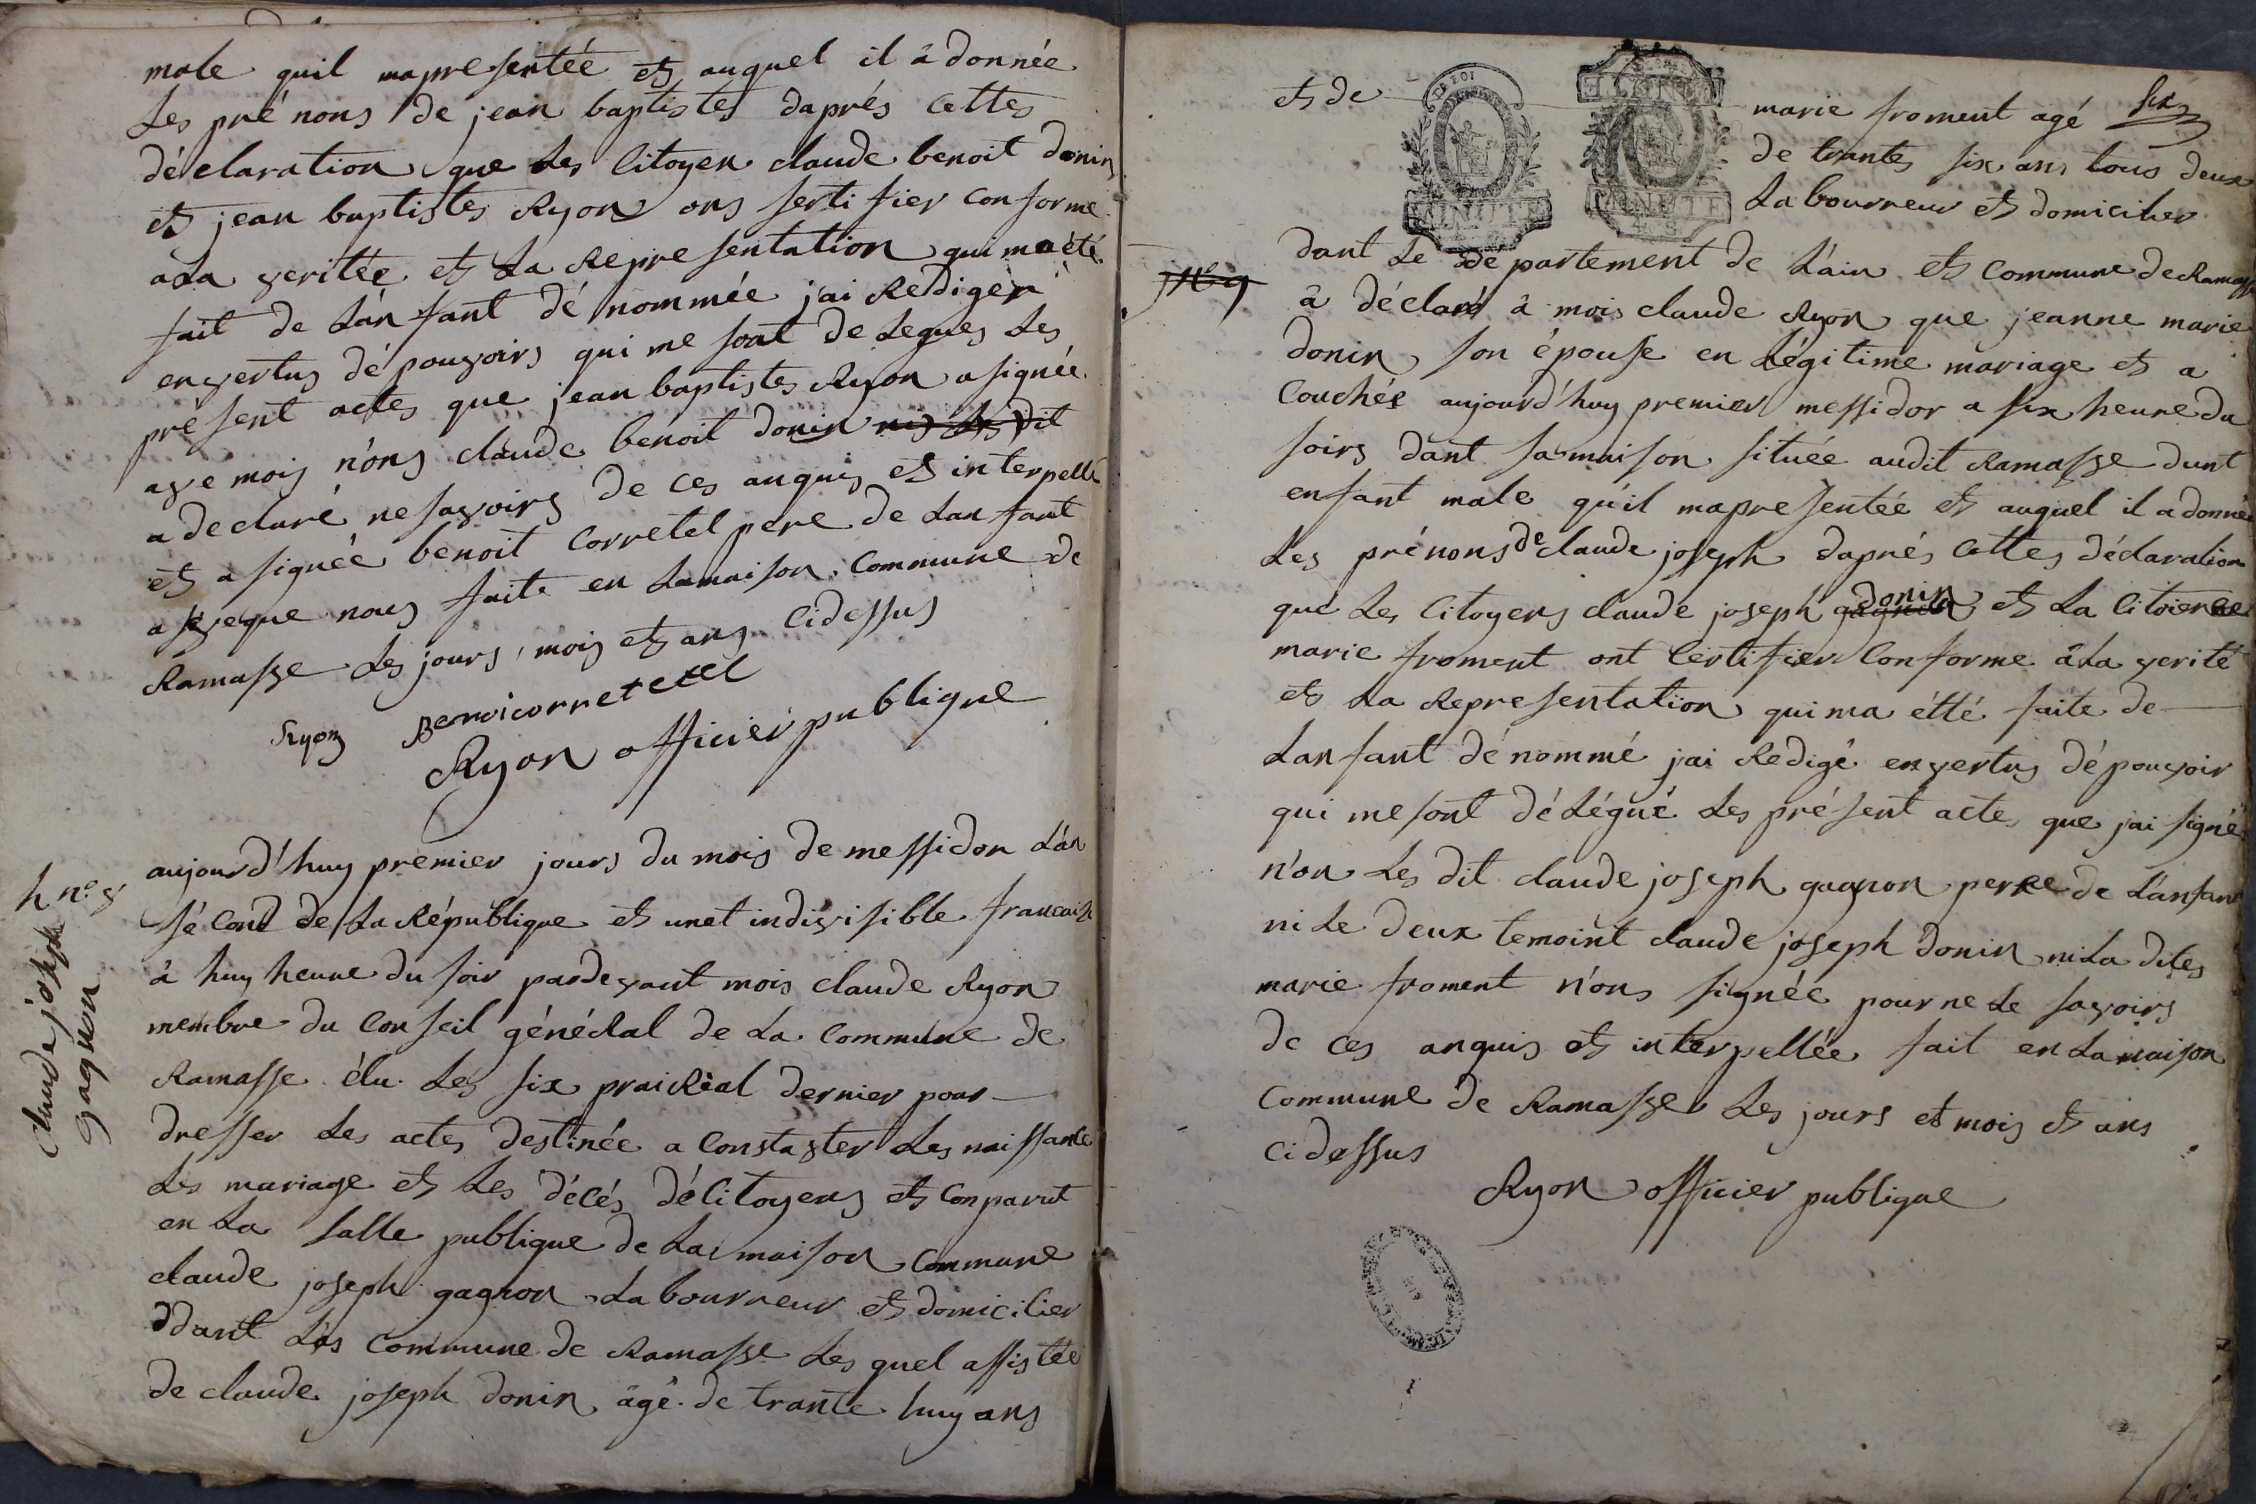 male quil mapresentée et auquel il à donnée
Les pré nons de jean baptistes daprés cettes
déclaration que Les Citoyen claude benoit donin
et jean baptistes Ryon ons sertifier Conforme
ala veritée et La Representation qui ma été
fait de Lánfant dé nommée j'ai Rediger
envertus dé pouvoirs qui me sont de Legues Les
présent actes que jean baptistes Ryon asignée
ave mois nòns claude benoit donin
a declaré ne savoirs de ces anquis et interpellé
et asignée benoit Corretel pere de Lanfant
aveque nous faite en Lamaison Commune de
Ramasse Les jours, mois et ans Cidessus
Ryon Benoicorretetel
Ryon officier publique
h n.º 8
claude joseph
gagnon
aujourd'huy premier jours du mois de messidor Lán
sé Cond de La République et unet indivisible francaise
à huy heure du soir pardevant mois claude Ryon
membre du Conseil général de La Commune de
Ramasse élu Les six prairéal dernier pour
dresser Les actes destinée a Constaster Les naissance
Les mariage et Les décés déCitoyens et Conparut
en La salle publique de La maison Commune
claude joseph gagnon Labourreur et domicilier
ddant Lás Commune de Ramasse Les quel assistée
de claude joseph donin âgé de trante huy ans
six
et de marie froment agé
de trantes six ans tous deux
Labourreur et domicilier
LA LOI
MINUTE
MINUTE
N.º 9
dant Le dé partement de Láin et Commune de Ramasse
à déclaré à mois claude Ryon que jeanne marie
donin son épouse en Légitime mariage et a
Couchée aujourd'huy premier messidor a six heure du
soirs dant samaison située audit Ramasse dunt
enfant male qu'il mapresentée et auquel il adonnée
Les prénons de claude joseph daprés Cettes déclaration
que Les Citoyens claude joseph donin et La Citoienne
marie froment ont Certifier Conforme àLa verité
et La Representation qui ma étté faite de
Lanfant dénommé j'ai Redigé envertus dé pouvoir
qui mesont déLégué Les présent acte que jai signée
nòn Les dit claude joseph gagnon perre de Lánfant
ni Le deux temoint claude joseph donin ni La dites
marie froment nòns signée pour ne Le savoirs
de ces anquis et interpellée fait en Lamaison
Commune de Ramasse Les jours et mois et ans
Cidessus
Ryon officier publique